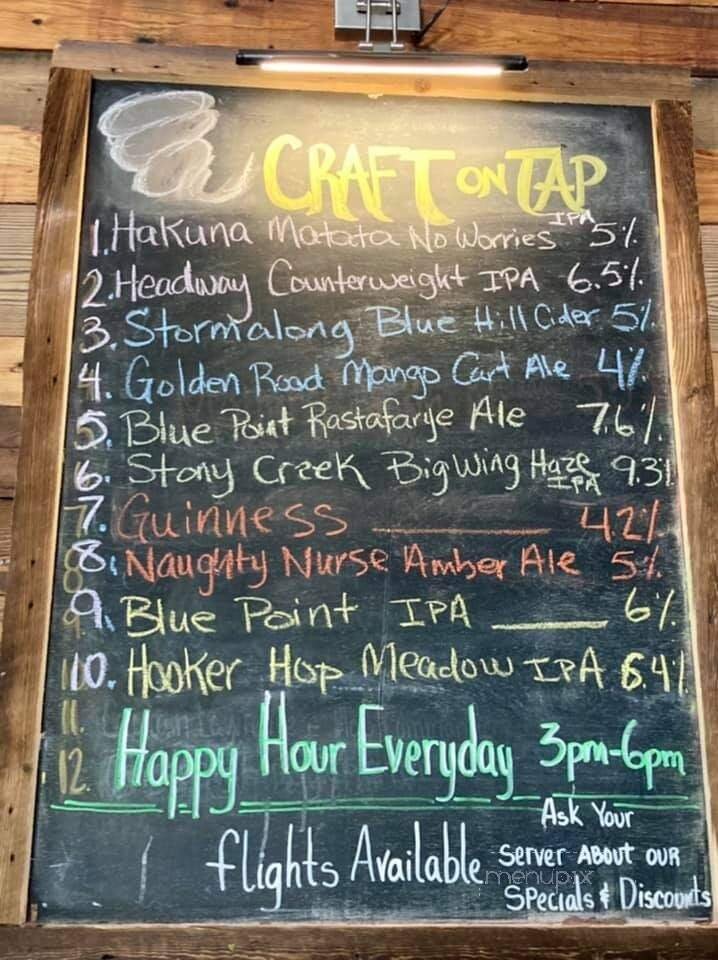 CRAFT ON TAP
1. Hakuna Matata No Worries IPA 5%
2. Headway Counterweight IPA 6.5%
3. Stormalong Blue Hill Cider 5%
4. Golden Road Mango Cart Ale 4%
5. Blue Point Rastafarye Ale 7.6%
6. Stony Creek Big Wing Haze IPA 9.3%
7. Guinness 4.2%
8. Naughty Nurse Amber Ale 5%
9. Blue Point IPA 6%
10. Hooker Hop Meadow IPA 6.4%
11.
12. Happy Hour Everyday 3pm-6pm
flights Available
Ask Your
Server About our
Specials & Discounts
menupix